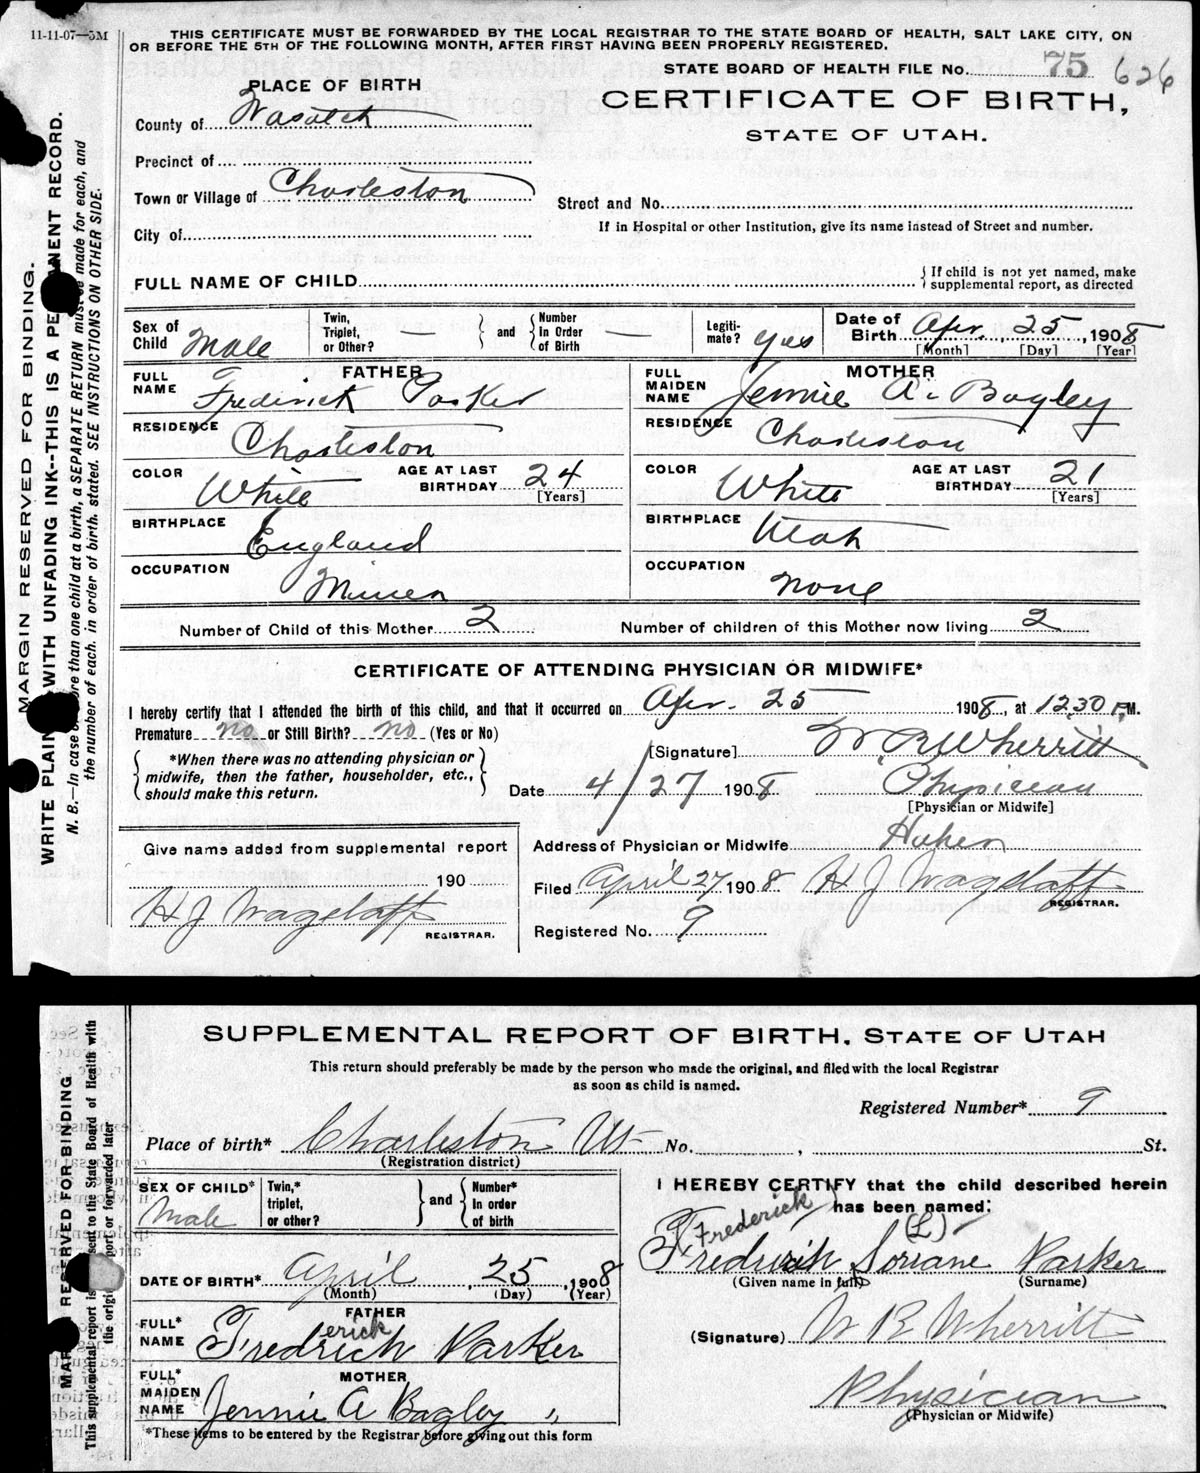 11-11-07—5M
THIS CERTIFICATE MUST BE FORWARDED BY THE LOCAL REGISTRAR TO THE STATE BOARD OF HEALTH, SALT LAKE CITY, ON
OR BEFORE THE 5TH OF THE FOLLOWING MONTH, AFTER FIRST HAVING BEEN PROPERLY REGISTERED.
STATE BOARD OF HEALTH FILE No. 75 626
PLACE OF BIRTH
CERTIFICATE OF BIRTH,
STATE OF UTAH.
County of Wasatch
Precinct of
Town or Village of Charleston
Street and No.
City of
If in Hospital or other Institution, give its name instead of Street and number.
FULL NAME OF CHILD
{ If child is not yet named, make
supplemental report, as directed
Sex of Child Male
Twin, Triplet, or Other? —
and
Number In Order of Birth —
Legiti-mate? Yes
Date of Birth Apr. 25, 1908
[Month] [Day] [Year]
FATHER
FULL NAME Frederick Parker
RESIDENCE Charleston
COLOR White
AGE AT LAST BIRTHDAY 24
[Years]
BIRTHPLACE England
OCCUPATION Miner
MOTHER
FULL MAIDEN NAME Jennie A. Bagley
RESIDENCE Charleston
COLOR White
AGE AT LAST BIRTHDAY 21
[Years]
BIRTHPLACE Utah
OCCUPATION None
Number of Child of this Mother 2
Number of children of this Mother now living 2
CERTIFICATE OF ATTENDING PHYSICIAN OR MIDWIFE*
I hereby certify that I attended the birth of this child, and that it occurred on Apr. 25 1908, at 12.30 P.M.
Premature no or Still Birth? no (Yes or No)
*When there was no attending physician or
midwife, then the father, householder, etc.,
should make this return.
[Signature] W R Wherritt
Date 4/27 1908 Physician
[Physician or Midwife]
Give name added from supplemental report
190
H J Wagstaff
REGISTRAR.
Address of Physician or Midwife Heber
Filed April 27 1908 H J Wagstaff
REGISTRAR.
Registered No. 9
MARGIN RESERVED FOR BINDING.
WRITE PLAINLY WITH UNFADING INK--THIS IS A PERMANENT RECORD.
N. B.—In case of more than one child at a birth, a SEPARATE RETURN must be made for each, and
the number of each, in order of birth, stated. SEE INSTRUCTIONS ON OTHER SIDE.
SUPPLEMENTAL REPORT OF BIRTH. STATE OF UTAH
This return should preferably be made by the person who made the original, and filed with the local Registrar
as soon as child is named.
Registered Number* 9
Place of birth* Charleston Ut No. , St.
(Registration district)
SEX OF CHILD* Male
Twin,* triplet, or other?
and
Number* In order of birth
DATE OF BIRTH* April, 25, 1908
(Month) (Day) (Year)
FATHER
FULL* NAME Fredrich erick Parker
MOTHER
FULL* MAIDEN NAME Jennie A Bagley
*These items to be entered by the Registrar before giving out this form
I HEREBY CERTIFY that the child described herein
has been named:
Frederick (L)
Fredrich Soriane Parker
(Given name in full) (Surname)
(Signature) W R Wherritt
Physician
(Physician or Midwife)
MARGIN RESERVED FOR BINDING
This supplemental report is sent to the State Board of Health with
the original report or forwarded later